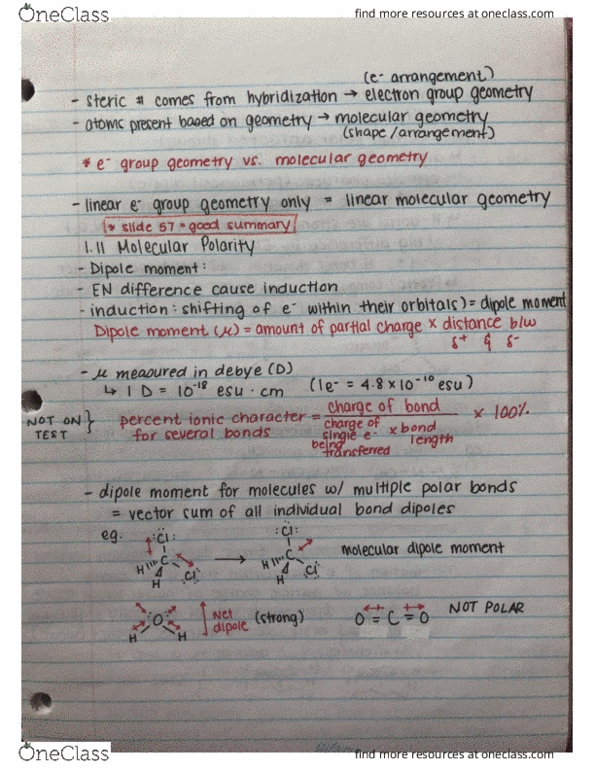 OneClass
find more resources at oneclass.com
(e⁻ arrangement)
- steric # comes from hybridization → electron group geometry
- atoms present based on geometry → molecular geometry
(shape/arrangement)
* e⁻ group geometry vs. molecular geometry
- linear e⁻ group geometry only = linear molecular geometry
* slide 57 * good summary
1.11 Molecular Polarity
- Dipole moment:
- EN difference cause induction
- induction: shifting of e⁻ within their orbitals) = dipole moment
Dipole moment (μ) = amount of partial charge × distance b/w
δ+ & δ-
- μ measured in debye (D)
↳ 1 D = 10⁻¹⁸ esu · cm (1e⁻ = 4.8 × 10⁻¹⁰ esu)
NOT ON TEST } percent ionic character for several bonds = charge of bond / charge of single e⁻ being transferred × bond length × 100%
- dipole moment for molecules w/ multiple polar bonds
= vector sum of all individual bond dipoles
eg.
:Cl: :Cl:
H C Cl → H C Cl molecular dipole moment
H H
O Net dipole (strong) O = C = O NOT POLAR
H H
OneClass
find more resources at oneclass.com